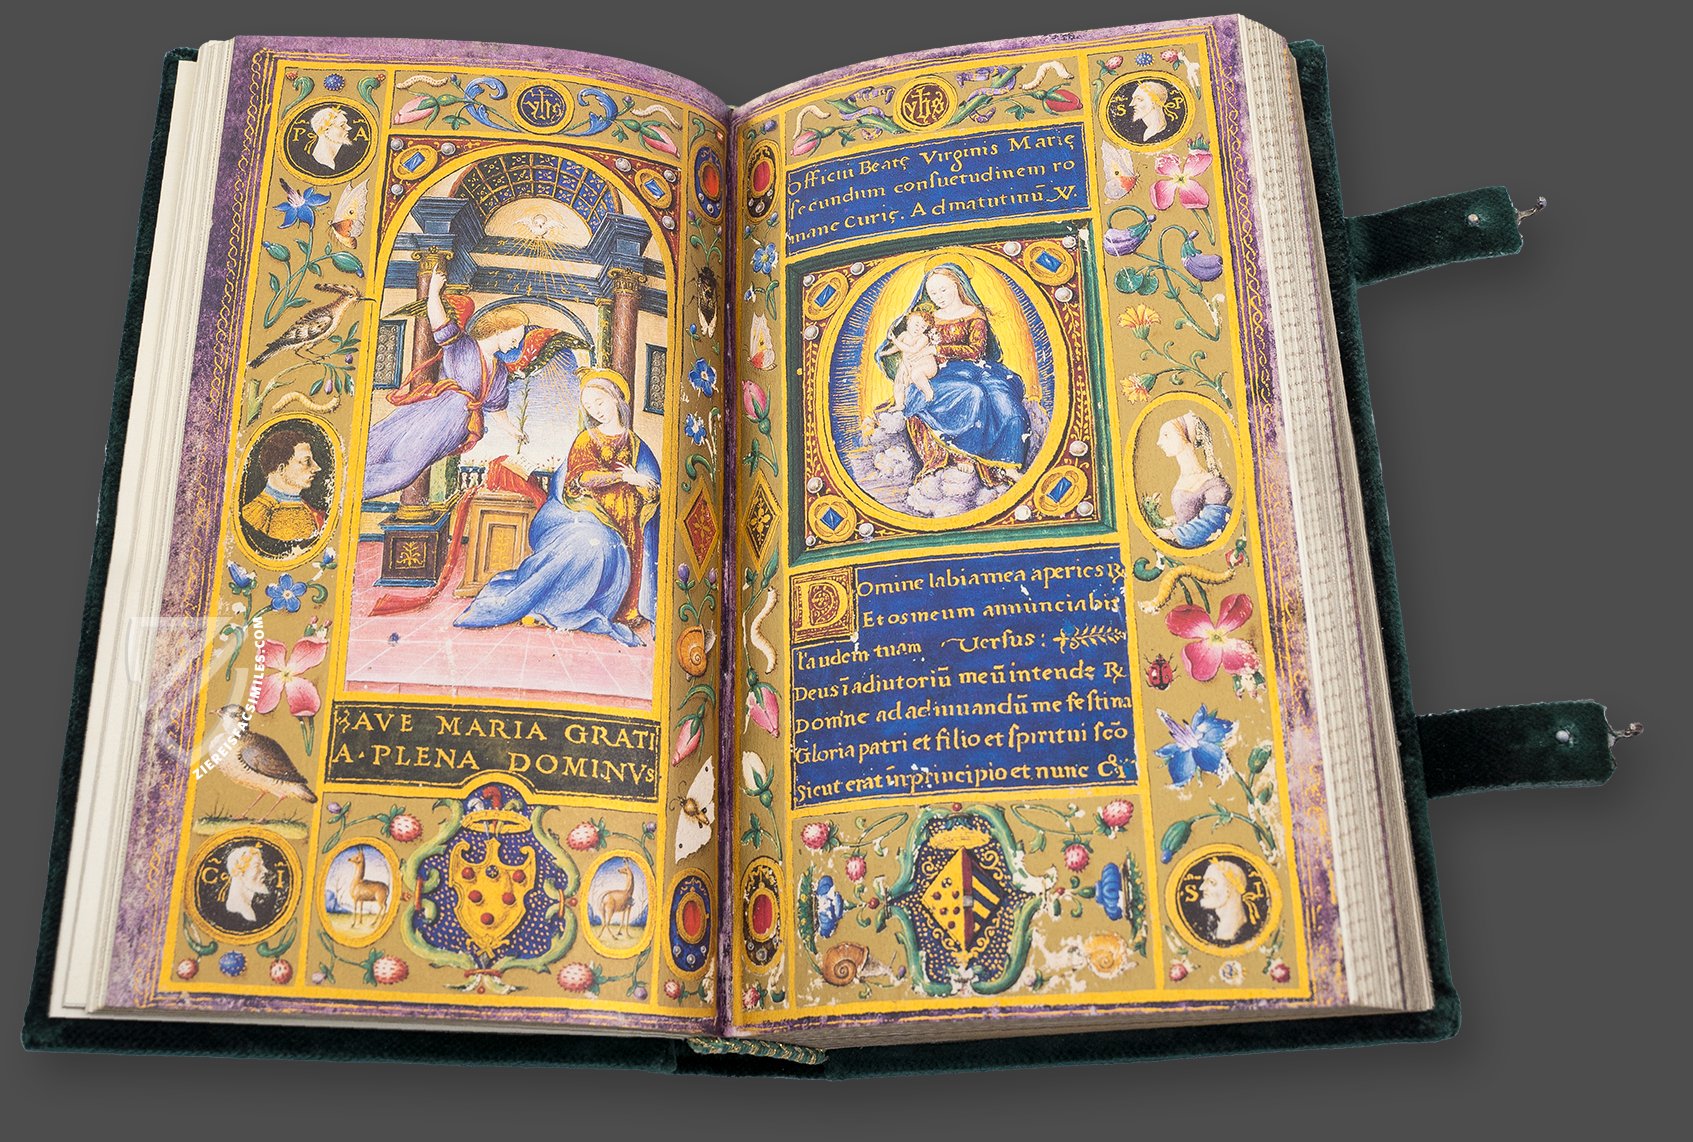 yhs
P A
AVE MARIA GRATI
A·PLENA DOMINVS
C I
ZIEREISFACSIMILES.COM
yhs
S P
Officiu Beatę Virginis Marię
secundum consuetudinem ro
mane Curię. Admatutinū V.
Domine labiamea aperies ℞
Et osmeum annunciabit
laudem tuam Versus:
Deus ī adiutoriū meū intende ℞
Domine ad adiuuandū me festina
Gloria patri et filio et spiritui scō
Sicut erat in principio et nunc &
S